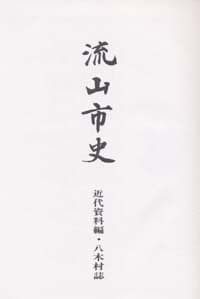 流山市史
近代資料編・八木村誌